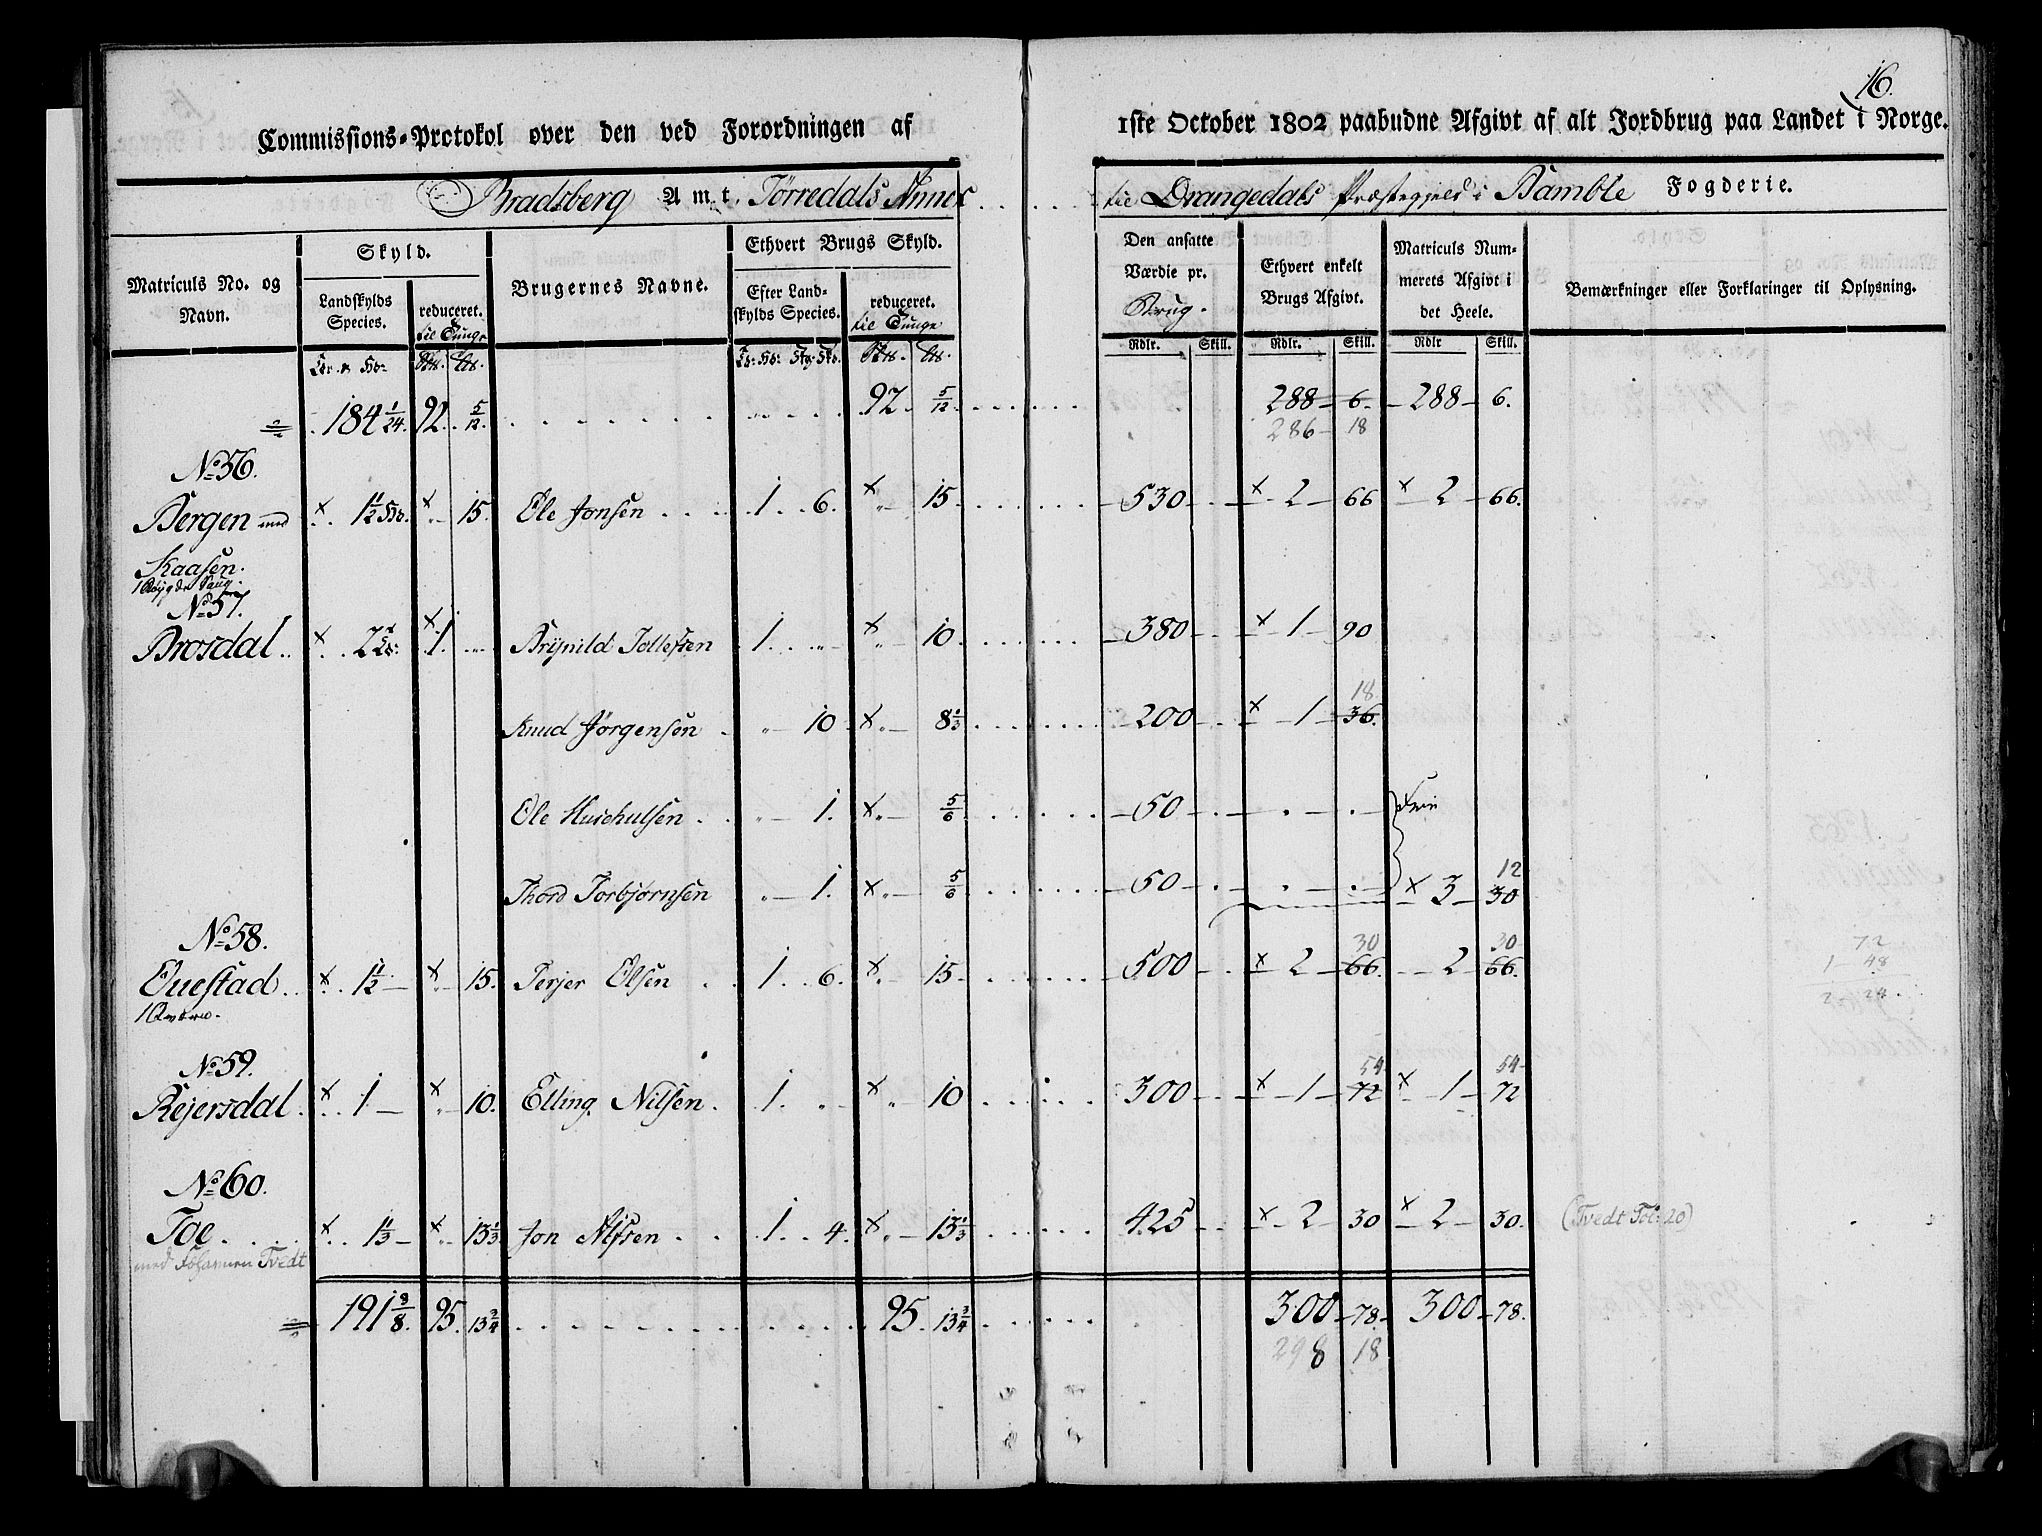 16.
Commissions-Protokol over den ved Forordningen af 1ste October 1802 paabudne Afgivt af alt Jordbrug paa Landet i Norge.
Bradsberg Amt. Tørredals Annex til Drangedals Præstegjeld i Bamble Fogderie.
Matriculs No. og Navn. Skyld. Brugernes Navne. Ethvert Brugs Skyld. Den ansatte Værdie pr. Brug. Ethvert enkelt Brugs Afgivt. Matriculs Nummerets Afgivt i det Heele. Bemærkninger eller Forklaringer til Oplysning.
Landskylds Species. reduceret. til Tunge Efter Landskylds Species. reduceret. til Tunge
Rdlr. Skill. Rdlr. Skill. Rdlr Skill.
184 1/24. 92. 5/12. 92 5/12. 288 6. 288 6.
286 18
No 56.
Bergen med 1 1/2 Hd. 15. Ole Jonsen 1 6. 15 530 2 66 2 66.
Kaasen.
No 57.
Brosdal 2 1. Brynild Tollefsen 1 10 380 1 90
18
Knud Jørgensen 10 8 1/3 200 1 36.
Ole 1. 5/6 50
Thord Torbjørnsen 1. 5/6 50 3 30
12
No 58.
30 30
Ouestad 1 1/2 15. Terjer Olsen 1 6. 15 500 2 66. 2 66.
72
1 48
2 24.
No 59.
54 54
Rejersdal 1 10. Elling Nilsen 1 10 300 1 72 1 72
No 60.
Toe 1 1/3 13 1/3 Jon Nilsen 1 4. 13 1/3 425 2 30 2 30. (Tvedt Toe 20)
med Johannen Tvedt
191 3/8. 95. 13 3/4 95. 13 3/4 300 78. 300 78.
298 18